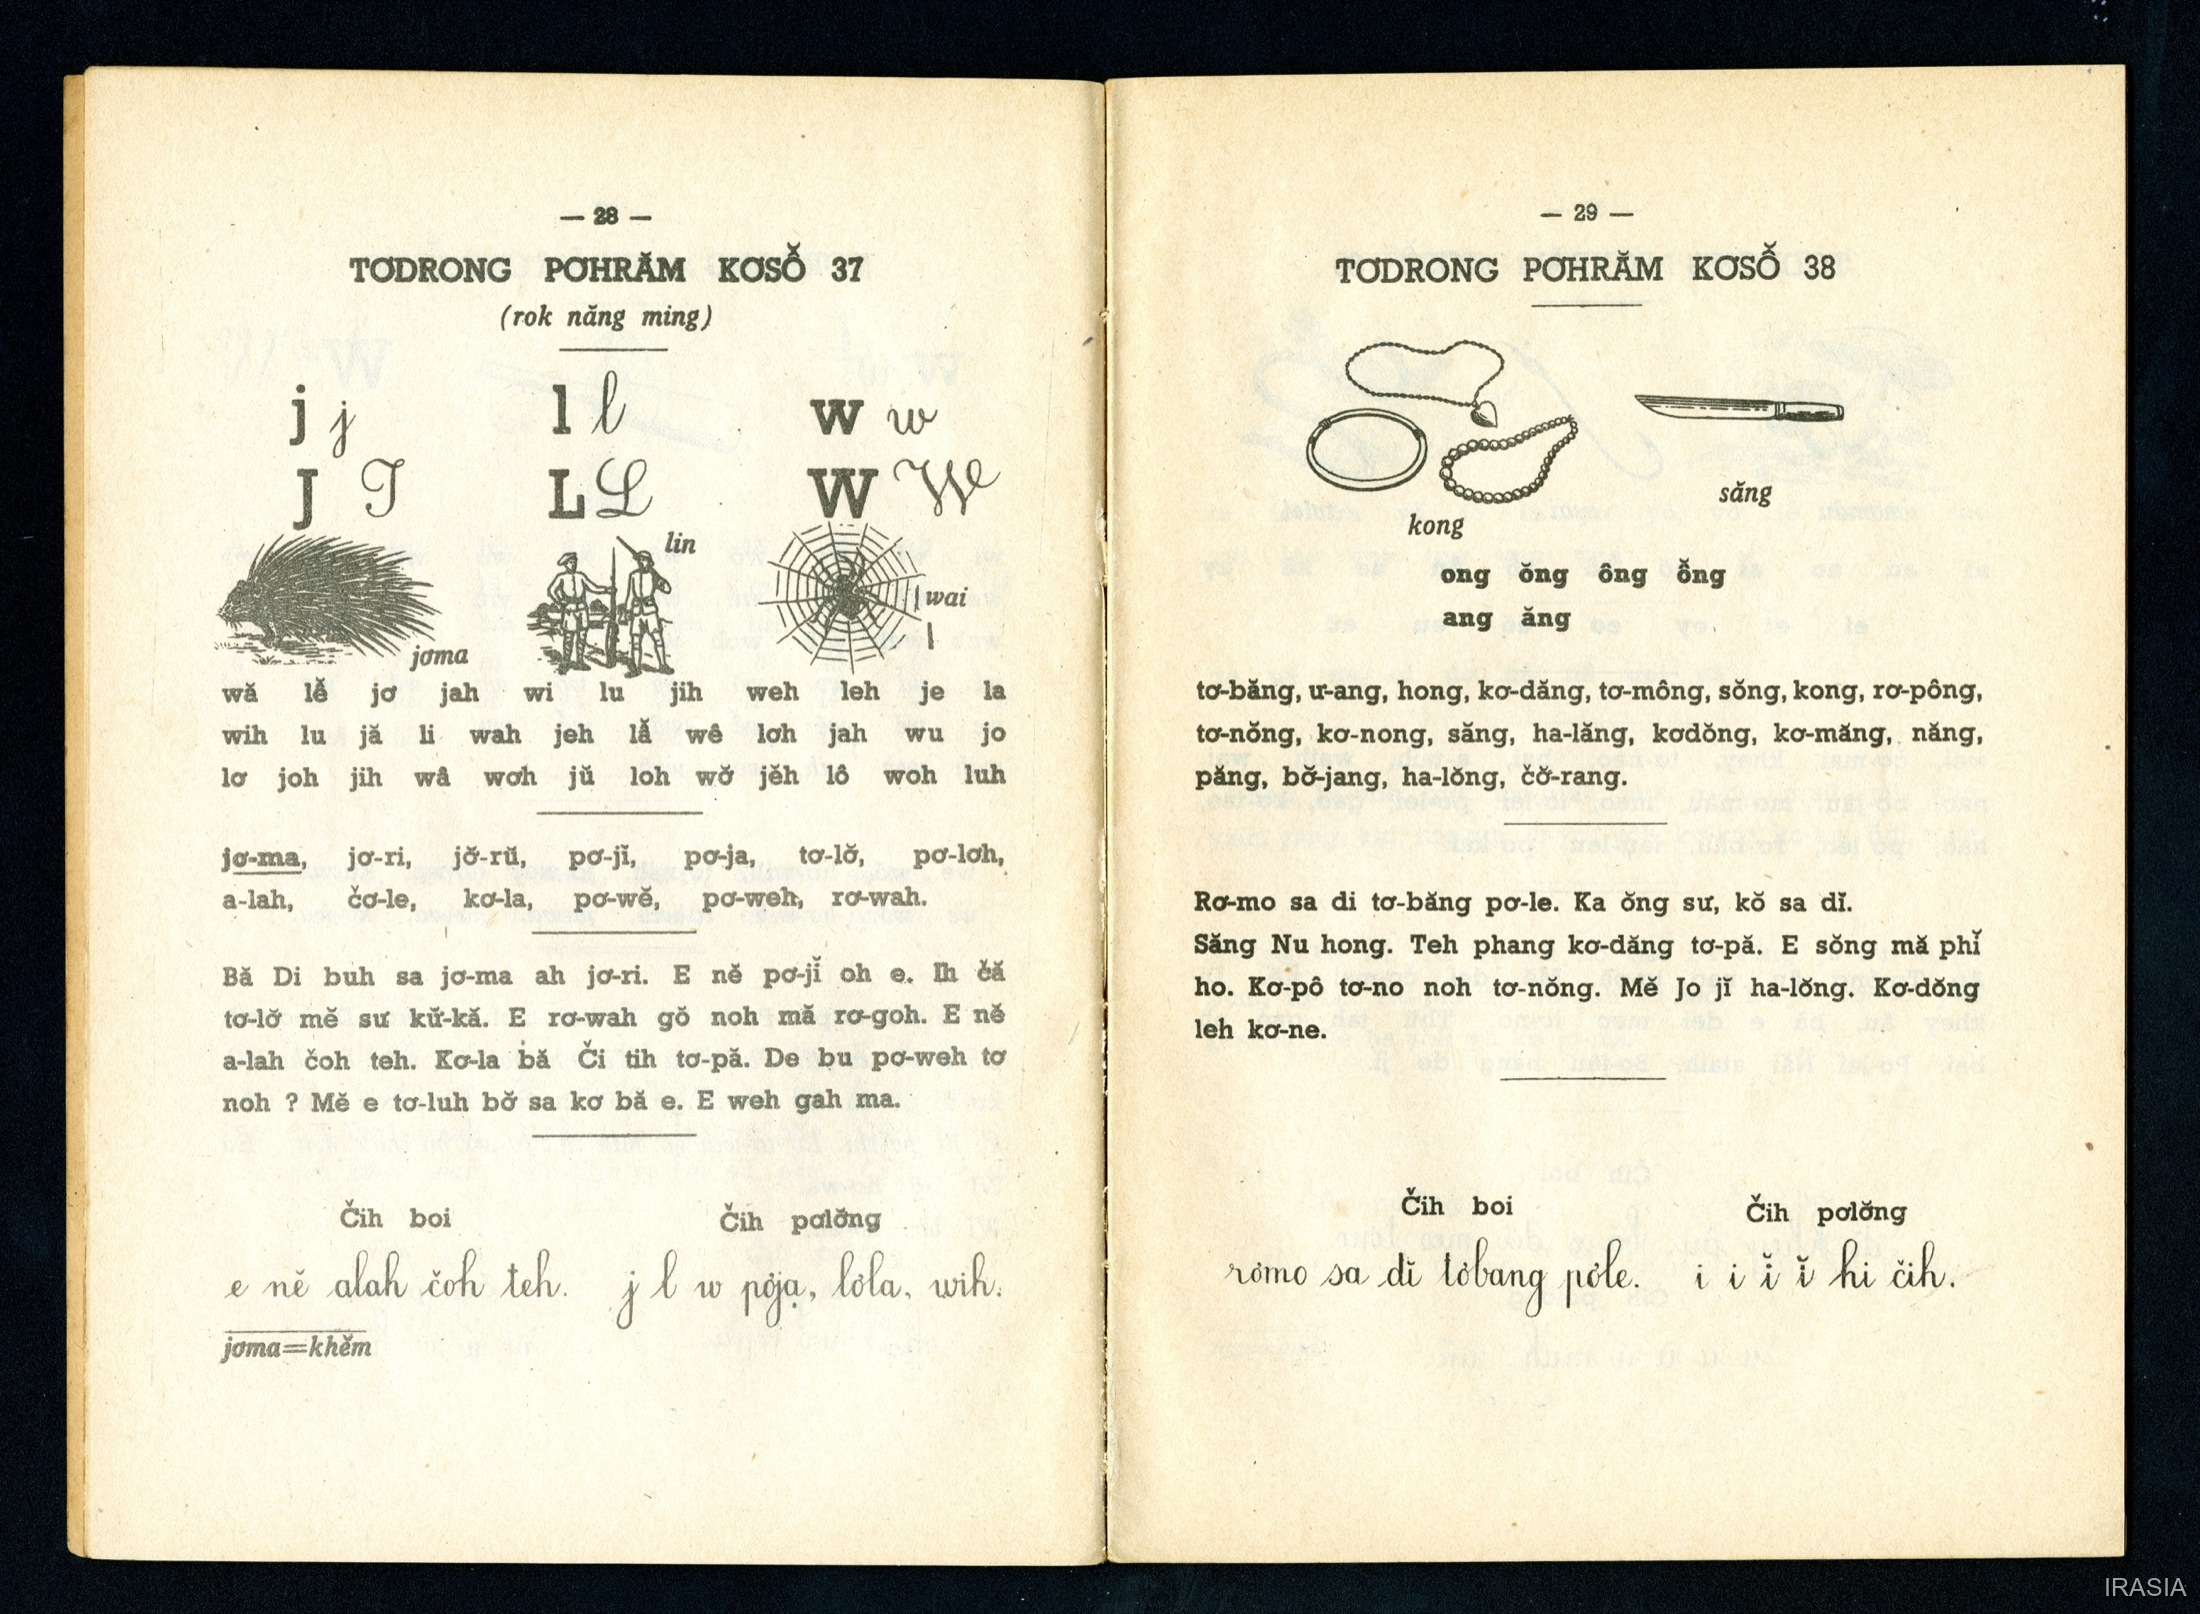 — 28 —
TƠDRONG PƠHRĂM KƠSỐ̆ 37
(rok năng ming)
j j l l w w
J J L L W W
lin
wai
jơma
wă lê̆ jơ jah wi lu jih weh leh je la
wih lu jă li wah jeh lâ̆ wê lơh jah wu jo
lơ joh jih wâ wơh jŭ loh wơ̆ jĕh lô woh luh
jơ-ma, jơ-ri, jơ̆-rŭ, pơ-jĭ, pơ-ja, tơ-lơ̆, pơ-lơh,
a-lah, čơ-le, kơ-la, pơ-wĕ, pơ-weh, rơ-wah.
Bă Di buh sa jơ-ma ah jơ-ri. E nĕ pơ-jĭ oh e. Ih čă
tơ-lơ̆ mĕ sư kư̆-kă. E rơ-wah gŏ noh mă rơ-goh. E nĕ
a-lah čoh teh. Kơ-la bă Či tih tơ-pă. De bu pơ-weh tơ
noh ? Mĕ e tơ-luh bơ̆ sa kơ bă e. E weh gah ma.
Čih boi Čih pơlơ̆ng
e nĕ alah čoh teh. j l w pơja, lơla, wih.
jơma=khĕm
— 29 —
TƠDRONG PƠHRĂM KƠSỐ̆ 38
săng
kong
ong ŏng ông ô̆ng
ang ăng
tơ-băng, ư-ang, hong, kơ-dăng, tơ-mông, sŏng, kong, rơ-pông,
tơ-nŏng, kơ-nong, săng, ha-lăng, kơdŏng, kơ-măng, năng,
păng, bơ̆-jang, ha-lŏng, čơ̆-rang.
Rơ-mo sa di tơ-băng pơ-le. Ka ŏng sư, kŏ sa dĭ.
Săng Nu hong. Teh phang kơ-dăng tơ-pă. E sŏng mă phĭ
ho. Kơ-pô tơ-no noh tơ-nŏng. Mĕ Jo jĭ ha-lŏng. Kơ-dŏng
leh kơ-ne.
Čih boi Čih pơlơ̆ng
rơmo sa dĭ tơbang pơle. i i ĭ ĭ hi čih.
IRASIA